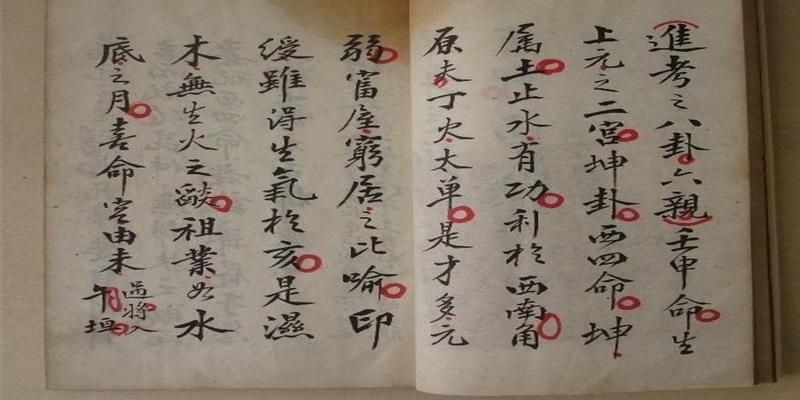 進考之八卦六親壬申命生
上元之二宮坤卦西四命坤
属土止水有功利於西南角
原夫丁火太单是才多元
弱富屋窮居之比喻印
綬雖得生氣於亥是濕
木無生火之燄祖業如水
底之月喜命宮由未
過將入
午垣